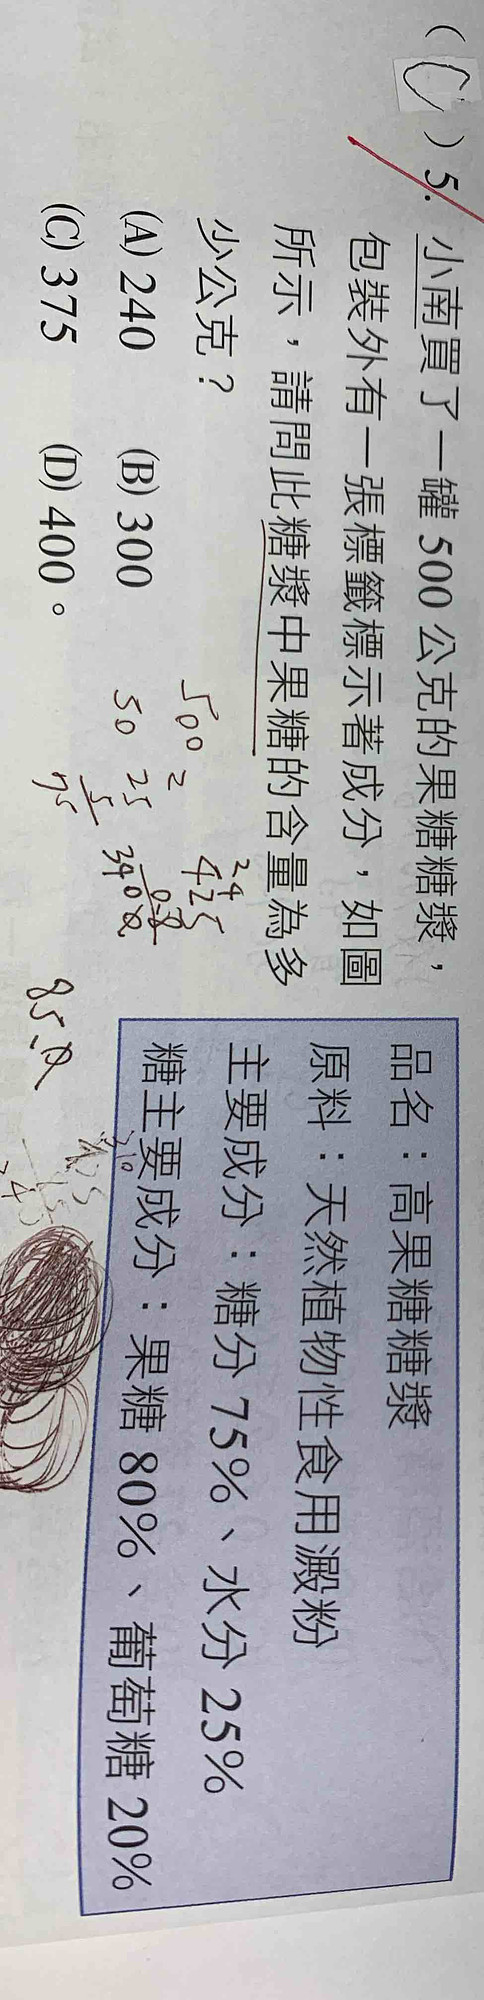 ( C ) 5. 小南買了一罐 500 公克的果糖糖漿，
包裝外有一張標籤標示著成分，如圖
所示，請問此糖漿中果糖的含量為多
少公克？
(A) 240 (B) 300
(C) 375 (D) 400。
500
50
25
5
75
425
品名：高果糖糖漿
原料：天然植物性食用澱粉
主要成分：糖分 75%、水分 25%
糖主要成分：果糖 80%、葡萄糖 20%